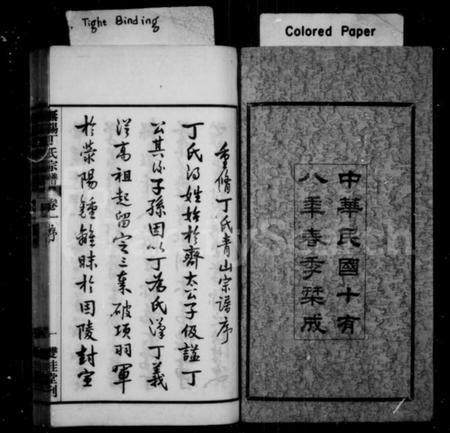 Tight Binding
Colored Paper
中華民國十有
八年春季栞成
重脩丁氏青山宗譜序
丁氏得姓始於齊太公子伋謚丁
公其後子孫因以丁為氏漢丁義
從高祖起留定三秦破項羽軍
於滎陽鍾離眛於固陵封宣
丁氏宗譜 卷一 序
一 雙桂堂刊